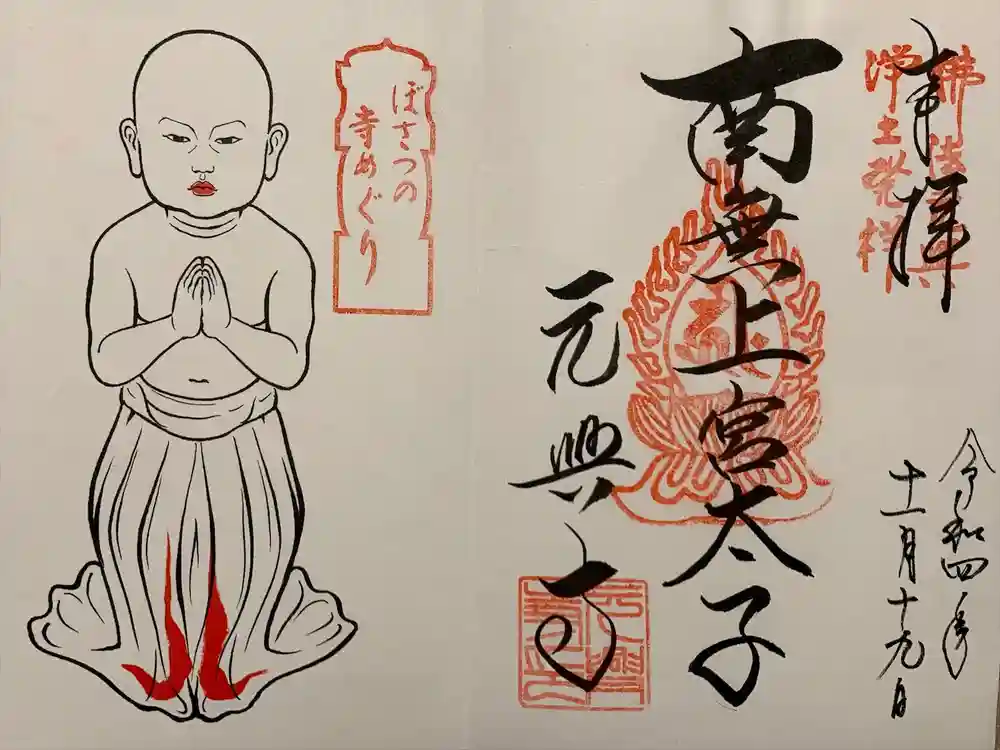 奉拝
佛法興隆
浄土発祥
令和四年
十一月十九日
南無上宮太子
元興寺
ぼさつの
寺めぐり